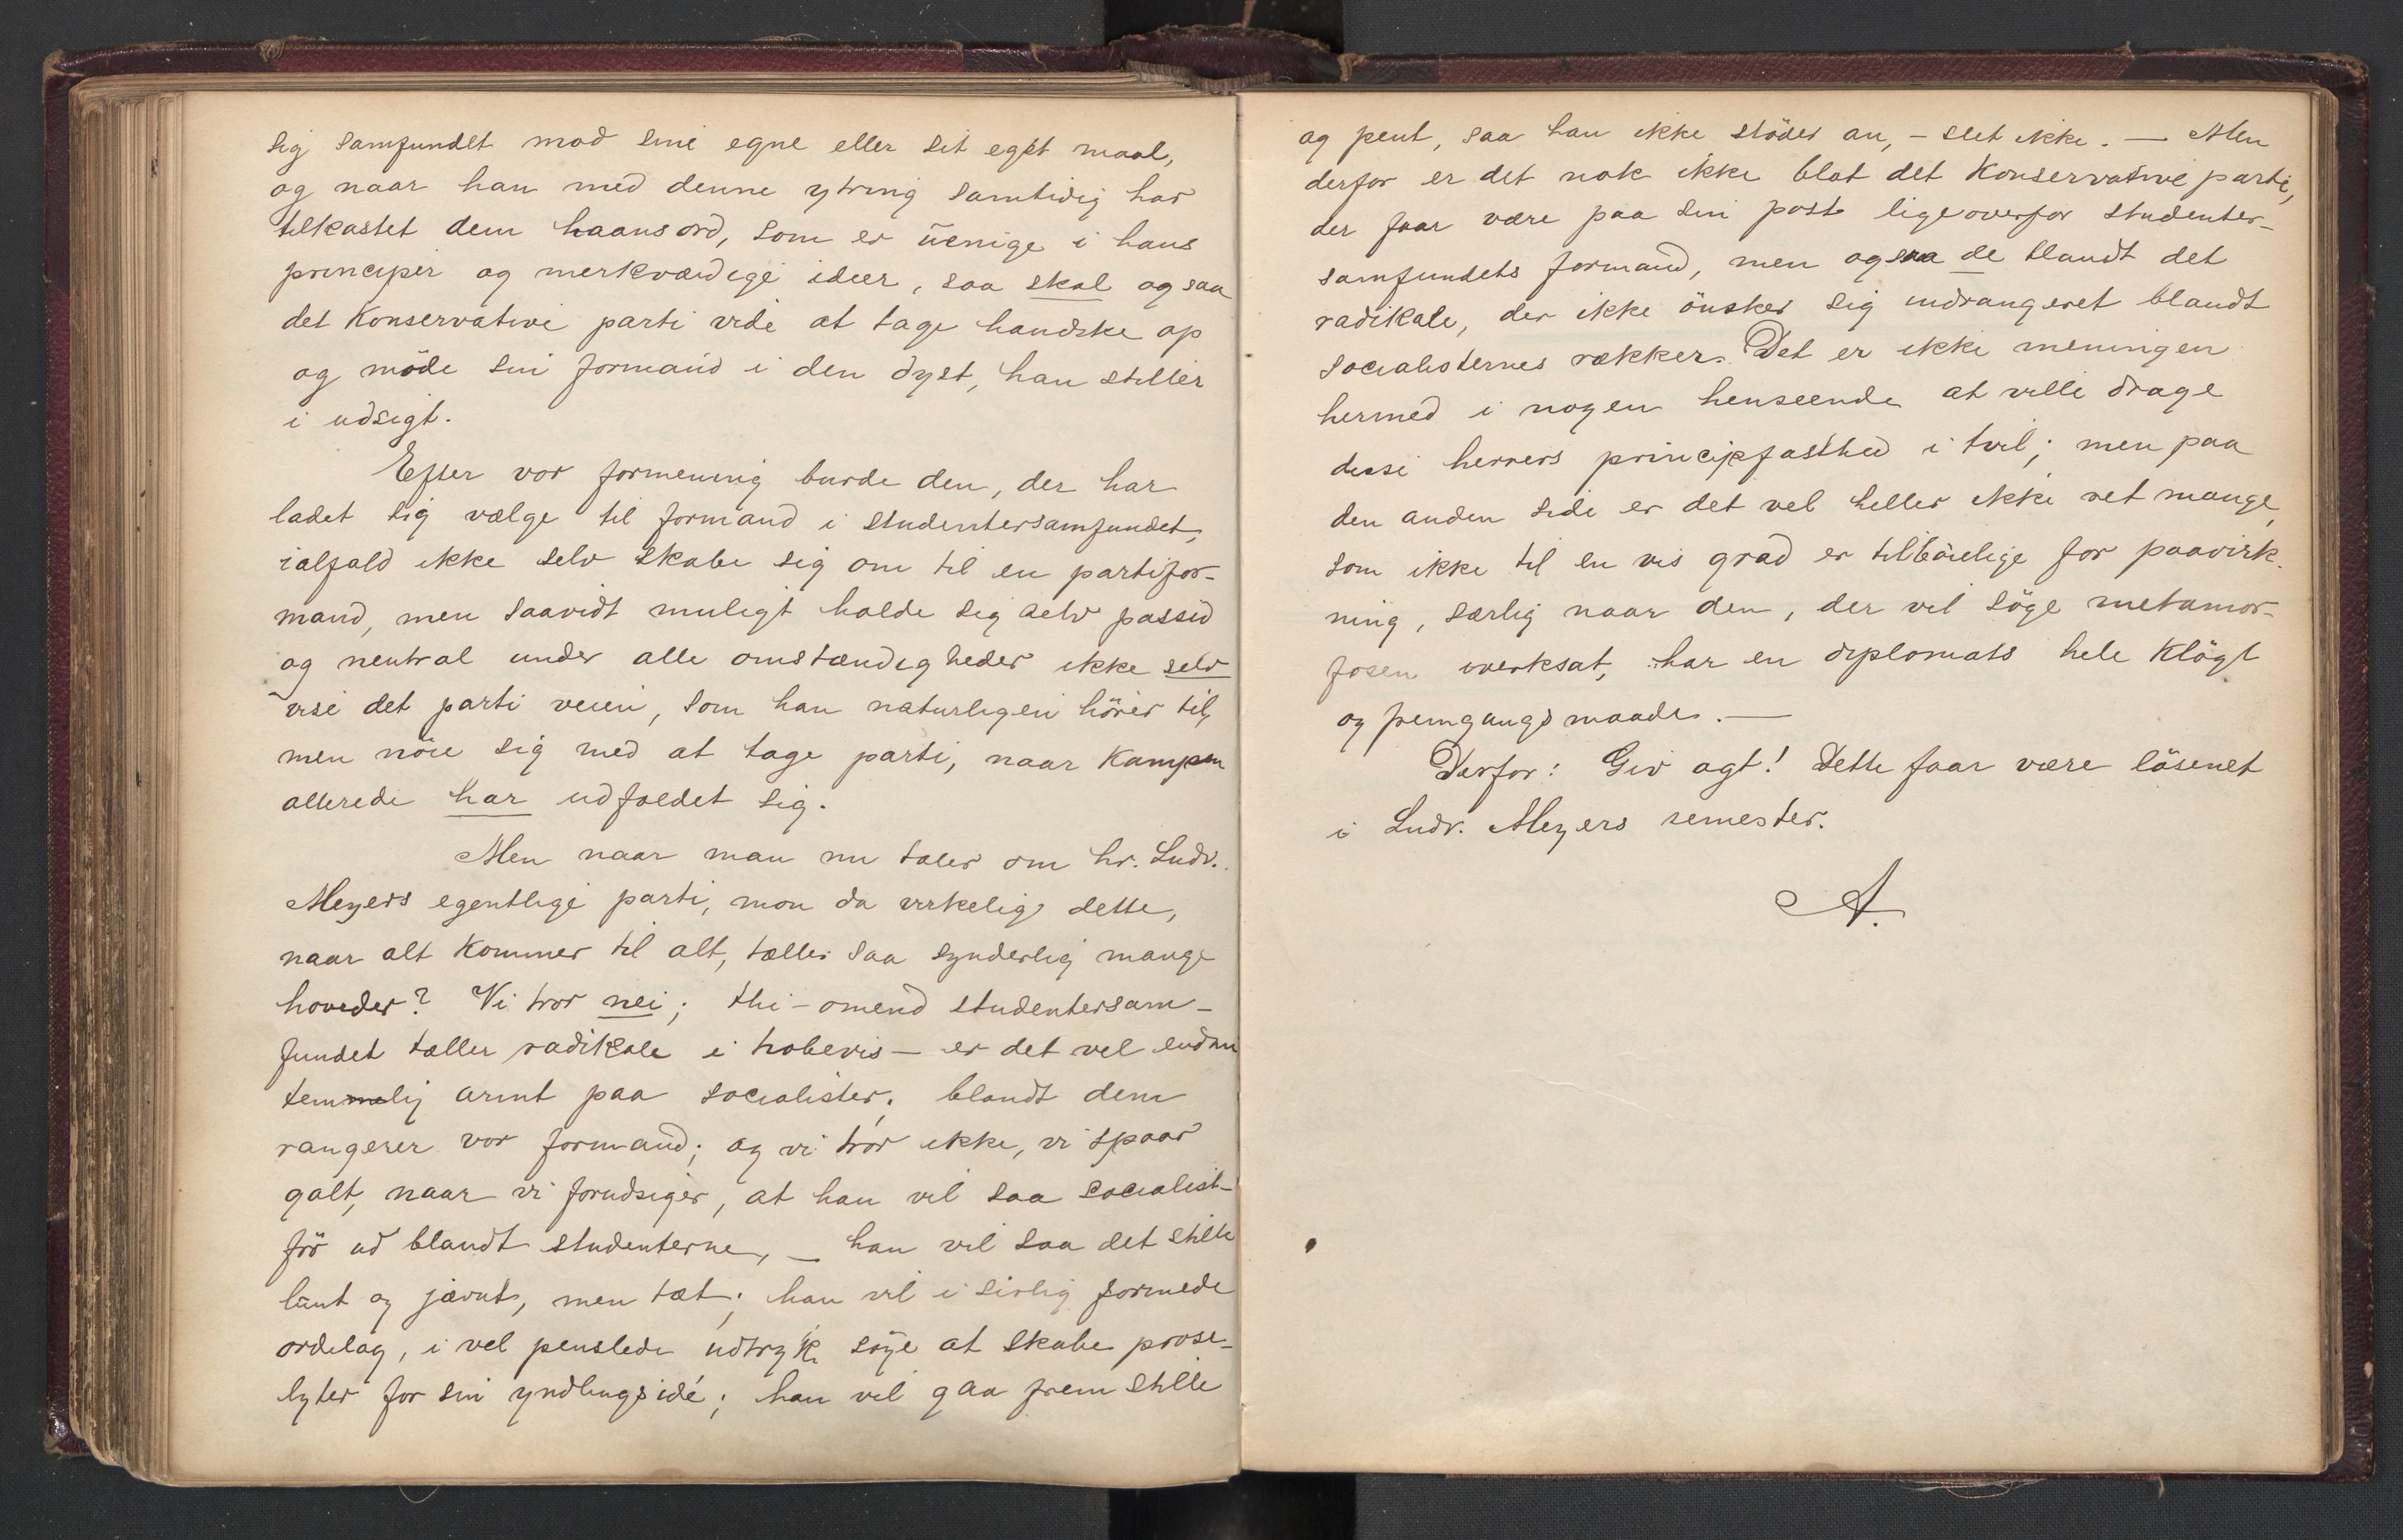 sig samfundet mod sine egne eller sit eget maal,
og naar han med denne ytring samtidig har
tilkastet dem haansord, som er uenige i hans
principer og merkværdige ideer, saa skal ogsaa
det konservative parti vide at tage handske op
og möde sin formand i den dyst, han stiller
i udsigt.
Efter vor formening burde den, der har
ladet sig vælge til formand i studentersamfundet,
ialfald ikke selv skabe sig om til en partifor-
mand, men saavidt muligt holde sig selv passiv
og neutral under alle omstændigheder ikke selv
vise det parti veien, som han naturligen hörer til,
men nöie sig med at tage parti, naar kampen
allerede har udfoldet sig.
Men naar man nu taler om hr. Ludv.
Meyers egentlige parti, mon da virkelig dette,
naar alt kommer til alt, tæller saa synderlig mange
hoveder? Vi tror nei; thi - omend studentersam-
fundet tæller radikale i hobevis - er det vel endnu
temmelig armt paa socialister; blandt dem
rangerer vor formand; og vi tror ikke, vi spaar
galt, naar vi forudsiger, at han vil saa socialist-
frö ud blandt studenterne, - han vil saa det stille
lunt og jævnt, men tæt; han vil i sirlig formede
ordelag, i vel penslede udtryk söge at skabe prose-
lyter for sin yndlingsidé; han vil gaa frem stille
og pent, saa han ikke stöder an, - slet ikke. - Men
derfor er det nok ikke blot det konservative parti,
der faar være paa sin post ligeoverfor studenter-
samfundets formand, men ogsaa de blandt det
radikale, der ikke önsker sig indrangeret blandt
socialisternes rækker. Det er ikke meningen
hermed i nogen henseende at ville drage
disse herrers principfasthed i tvil; men paa
den anden side er det vel heller ikke ret mange,
som ikke til en vis grad er tilböielige for paavirk-
ning, særlig naar den, der vil söge metamor-
fosen iverksat, har en diplomats hele klögt
og fremgangsmaade. -
Derfor: Giv agt! Dette faar være lösenet
i Ludv. Meyers semester.
A.